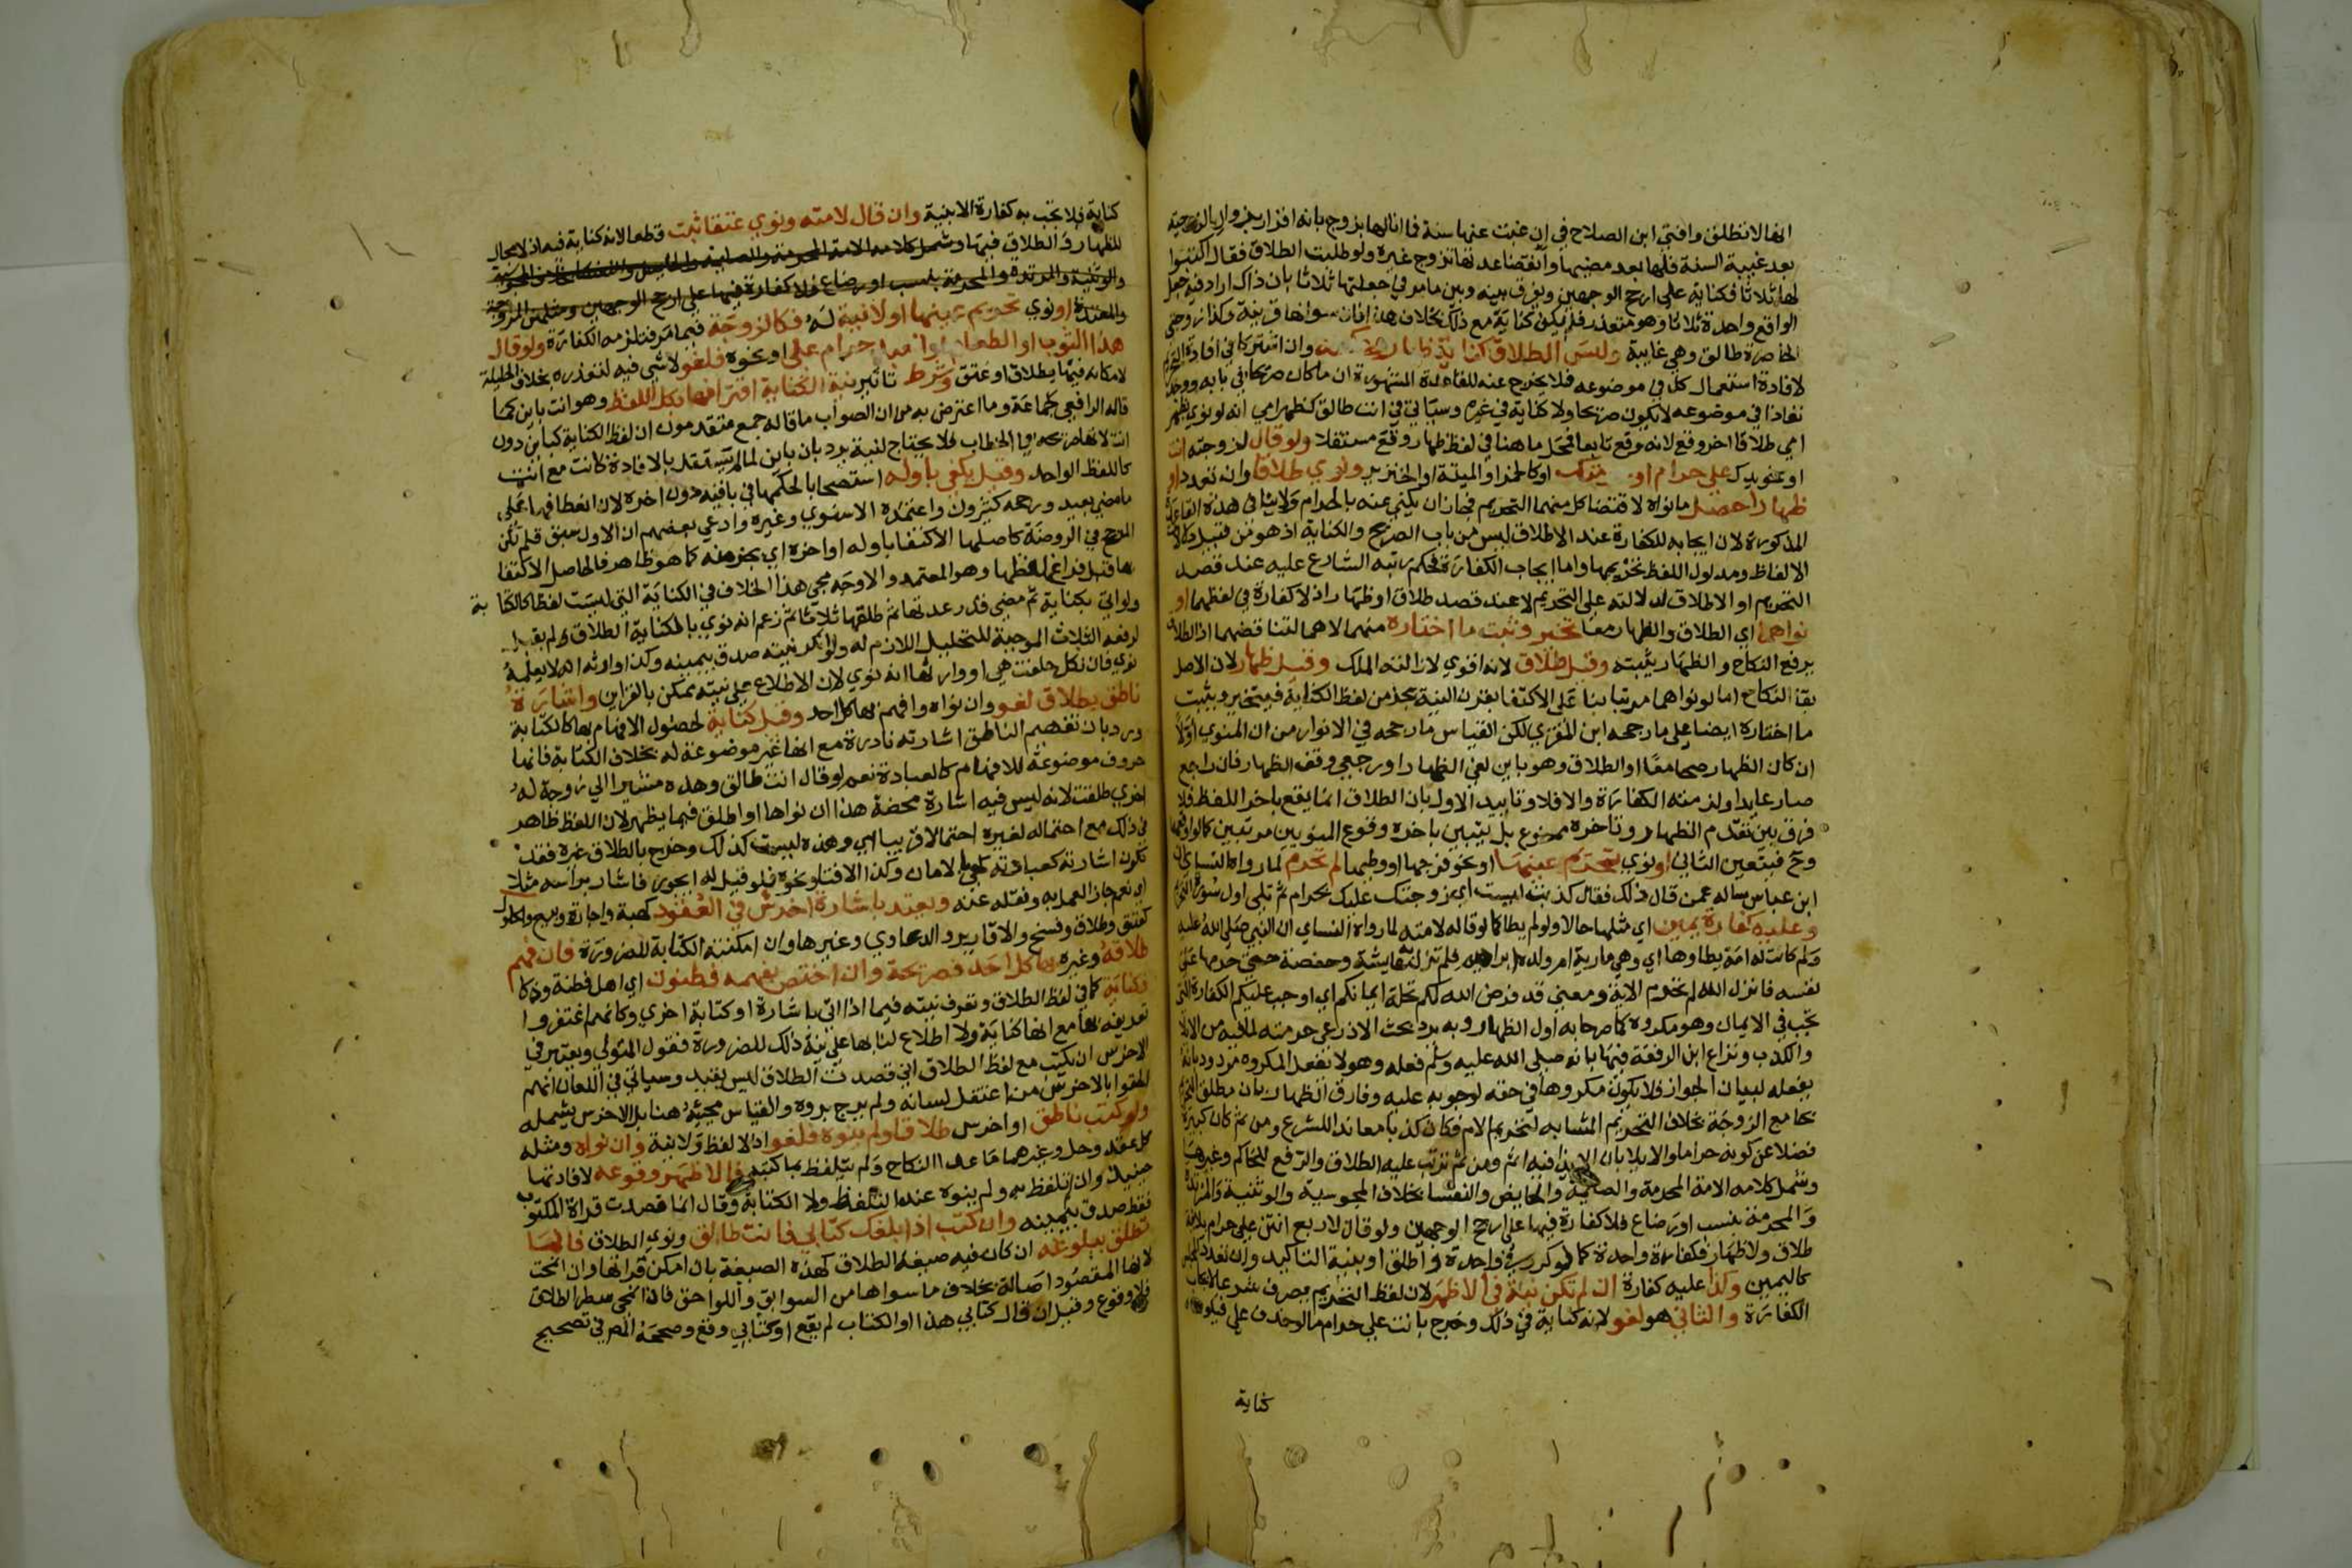 انها لا تطلق وافتى ابن الصلاح في ان غبت عنها سنة فما انا لها بزوج بانه اقرار بزوال الزوجية
بعد غيبة السنة فلها بعد مضيها وانقضا عدتها تزوج غيره ولو طلبت الطلاق فقال اكتبوا
لها ثلاثا فكناية على ارجح الوجهين ويفرق بينه وبين ما مر في جعلتها ثلاثا بان ذاك اراد فيه جعل
الواقع واحدة ثلاثا وهو متعذر فلم يكن كناية مع ذلك بخلاف هذا فان سوالها قرينة وكذا زوجتي
الحاضرة طالق وهي غايبة وليس الطلاق كناية ظهار وعكسه وان اشتركا في افادة التحريم
لافادة استعمال كل في موضوعه فلا يخرج عنه للقاعدة المشهورة ان ما كان صريحا في بابه ووجد
نفاذا في موضوعه لا يكون صريحا ولا كناية في غيره وسياتي في انت طالق كظهر امي انه لو نوى بظهر
امي طلاقا اخر وقع لانه وقع تابعا فمحل ما هنا في لفظ ظهار وقع مستقلا ولو قال لزوجته انت
او نحو يدك علي حرام او حرمتك او كالخمر او الميتة او الخنزير ونوى طلاقا وان تعدد او
ظهارا حصل ما نواه لاقتضا كل منهما التحريم فجاز ان يكنى عنه بالحرام ولا ينافي هذه القاعدة
المذكورة لان ايجابه للكفارة عند الاطلاق ليس من باب الصريح والكناية اذ هو من قبيل دلالة
الالفاظ ومدلول اللفظ تحريمها واما ايجاب الكفارة فحكم رتبه الشارع عليه عند قصد
التحريم او الاطلاق لدلالته على التحريم لا عند قصد طلاق او ظهار اذ لا كفارة في لفظهما او
نواهما اي الطلاق والظهار معا تخير وثبت ما اختاره منهما لا هما لتناقضهما اذ الطلاق
يرفع النكاح والظهار يثبته وقيل طلاق لانه اقوى لازالته الملك وقيل ظهار لان الاصل
بقا النكاح اما لو نواهما مرتبا بنا على الاكتفا بقرن النية بجزء من لفظ الكناية فيتخير ويثبت
ما اختاره ايضا على ما رجحه ابن المقري لكن القياس ما رجحه في الانوار من ان المنوي اولا
ان كان الظهار صحا معا او الطلاق وهو باين لغى الظهار او رجعي وقف الظهار فان راجع
صار عايدا ولزمته الكفارة والا فلا وتاييد الاول بان الطلاق انما يقع باخر اللفظ فلا
فرق بين تقدم الظهار وتاخره ممنوع بل يتبين باخره وقوع المنويين مرتبين كما اوقعهما
وح فيتعين الثاني او نوى تحريم عينها او نحو فرجها او وطيها لم تحرم لما رواه النساي ان
ابن عباس ساله عمن قال ذلك فقال كذبت ليست اي زوجتك عليك بحرام ثم تلى اول سورة التحريم
وعليه كفارة يمين اي مثلها حالا ولو لم يطا كما لو قاله لامته لما رواه النساي ان النبي صلى الله عليه
وسلم كانت له امة يطاوها اي وهي مارية ام ولده ابراهيم فلم تزل به عايشة وحفصة حتى حرمها على
نفسه فانزل الله لم تحرم الاية ومعنى قد فرض الله لكم تحلة ايمانكم اي اوجب عليكم الكفارة التي
تجب في الايمان وهو مكروه كما صرحا به اول الظهار وبه يرد بحث الاذرعي حرمته لما فيه من الايذا
والكذب ونزاع ابن الرفعة فيها بانه صلى الله عليه وسلم فعله وهو لا يفعل المكروه مردود بانه
يفعله لبيان الجواز فلا يكون مكروها في حقه لوجوبه عليه وفارق الظهار بان مطلق التحريم
يجامع الزوجة بخلاف التحريم المشابه لتحريم الام فكان كذبا معاندا للشرع ومن ثم كان كبيرة
فضلا عن كونه حراما والايلا بان الايذا فيه اتم ومن ثم ترتب عليه الطلاق والرفع للحاكم وغيرهما
وشمل كلامه الامة المحرمة والصايمة والحايض والنفسا بخلاف المجوسية والوثنية والمرتدة
والمحرمة بنسب او رضاع فلا كفارة فيها على ارجح الوجهين ولو قال لاربع انتن علي حرام بلا نية
طلاق ولا ظهار فكفارة واحدة كما لو كرره في واحدة واطلق او بنية التاكيد وان تعدد المجلس
كاليمين وكذا عليه كفارة ان لم تكن نية في الاظهر لان لفظ التحريم ينصرف شرعا لايجاب
الكفارة والثاني هو لغو لانه كناية في ذلك وخرج بانت علي حرام ما لو حذف علي فيكون
كناية
كناية فلا تجب به كفارة الا بنية وان قال لامته ونوى عتقا ثبت قطعا لانه كناية فيه اذ لا مجال
للظهار والطلاق فيها وشمل كلامه الامة المحرمة والصايمة والحايض والنفسا بخلاف المجوسية
والوثنية والمرتدة والمحرمة بنسب او رضاع فلا كفارة فيها على ارجح الوجهين ومثلهن المزوجة
والمعتدة او نوى تحريم عينها او لا نية له فكالزوجة فيما مر فتلزمه الكفارة ولو قال
هذا الثوب او الطعام او العبد حرام علي او نحوه فلغو لا شي فيه لتعذره بخلاف الحليلة
لامكانه فيها بطلاق او عتق وشرط تاثير نية الكناية اقترانها بكل اللفظ وهو انت باين كما
قاله الرافعي كجماعة وما اعترض به من ان الصواب ما قاله جمع متقدمون ان لفظ الكناية كباين دون
انت لانها صريحة في الخطاب فلا يحتاج لنية يرد بان باين لما لم يستقل بالافادة كانت مع انت
كاللفظ الواحد وقيل يكفي باوله استصحابا لحكمها في باقيه دون اخره لان انعطافها على
ما مضى بعيد ورجحه كثيرون واعتمده الاسنوي وغيره وادعى بعضهم ان الاول سبق قلم لكن
المرجح في الروضة كاصلها الاكتفا باوله او اخره اي بجزء منه كما هو ظاهر فالحاصل الاكتفا
بها قبل فراغ لفظها وهو المعتمد والاوجه مجي هذا الخلاف في الكناية التي ليست لفظا كالكتابة
ولو اتى بكناية ثم مضى قدر عدتها ثم طلقها ثلاثا ثم زعم انه نوى بالكناية الطلاق لم يقبل
لرفعه الثلاث الموجبة للتحليل اللازم له ولو انكر نيته صدق بيمينه وكذا وارثه انه لا يعلمه
نوى فان نكل حلفت هي او وارثها انه نوى لان الاطلاع على نيته ممكن بالقراين واشارة
ناطق بطلاق لغو وان نواه وافهم بها كل احد وقيل كناية لحصول الافهام بها كالكتابة
ورد بان تفهيم الناطق اشارته نادرة مع انها غير موضوعة له بخلاف الكتابة فانها
حروف موضوعة للافهام كالعبارة نعم لو قال انت طالق وهذه مشيرا الى زوجة له
اخرى طلقت لانه ليس فيه اشارة محضة هذا ان نواها او اطلق فيما يظهر لان اللفظ ظاهر
في ذلك مع احتماله لغيره احتمالا قريبا اي وهذه ليست كذلك وخرج بالطلاق غيره فقد
تكون اشارته كعبارته كهي بالامان وكذا الافتا ونحوه فلو قيل له ايجوز فاشار براسه مثلا
اي نعم جاز العمل به ونقله عنه ويعتد باشارة اخرس في العقود كهبة واجارة وبيع والحلول
كعتق وطلاق وفسخ والاقارير والدعاوي وغيرها وان امكنته الكتابة للضرورة فان فهم
طلاقه وغيره بها كل احد فصريحة وان اختص بفهمه فطنون اي اهل فطنة وذكا
فكناية كما في لفظ الطلاق وتعرف نيته فيما اذا اتى باشارة او كتابة اخرى وكانهم اغتفروا
تعريفه بها مع انها كناية ولا اطلاع لنا بها على نية ذلك للضرورة فقول المتولي ويعتبر في
الاخرس ان يكتب مع لفظ الطلاق اني قصدت الطلاق ليس بقيد وسياتي في اللعان انهم
الحقوا بالاخرس من اعتقل لسانه ولم يرج بروه والقياس مجيئه هنا بل الاخرس يشمله
ولو كتب ناطق او اخرس طلاقا ولم ينوه فلغو اذ لا لفظ ولا نية وان نواه ومثله
كل عقد وحل وغيرهما ما عدا النكاح ولم يتلفظ بما كتبه فالاظهر وقوعه لافادتها
حينئذ وان تلفظ به ولم ينوه عند التلفظ ولا الكتابة وقال انما قصدت قراة المكتوب
فقط صدق بيمينه وان كتب اذا بلغك كتابي فانت طالق ونوى الطلاق فانما
تطلق ببلوغه ان كان فيه صيغة الطلاق كهذه الصيغة بان امكن قراتها وان انمحت
لانها المقصود اصالة بخلاف ما سواها من السوابق واللواحق فان انمحى سطر الطلاق
فلا وقوع وقيل ان قال كتابي هذا او الكتاب لم يقع او كتابي وقع وصححه المص في تصحيح